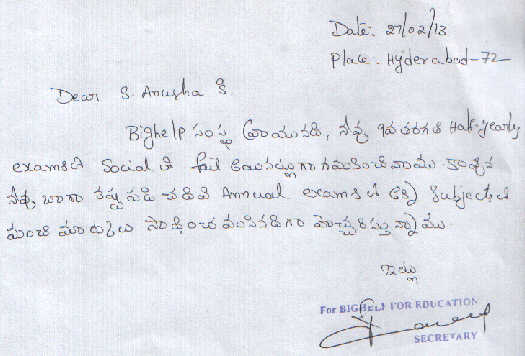 Date: 27/02/13
Place. Hyderabad-72
Dear S. Anusha S.
Bighelp సంస్థ వ్రాయునది, నీవు 9వ తరగతి Half-yearly
examsలో Socialలో fail అయినట్లుగా గమనించినాము కావున
నీవు బాగా కష్టపడి చదివి Annual examsలో అన్ని Subjectsలో
మంచి మార్కులు సాధించవలసినదిగా హెచ్చరిస్తున్నాము.
ఇట్లు
For BIGHELP FOR EDUCATION
SECRETARY